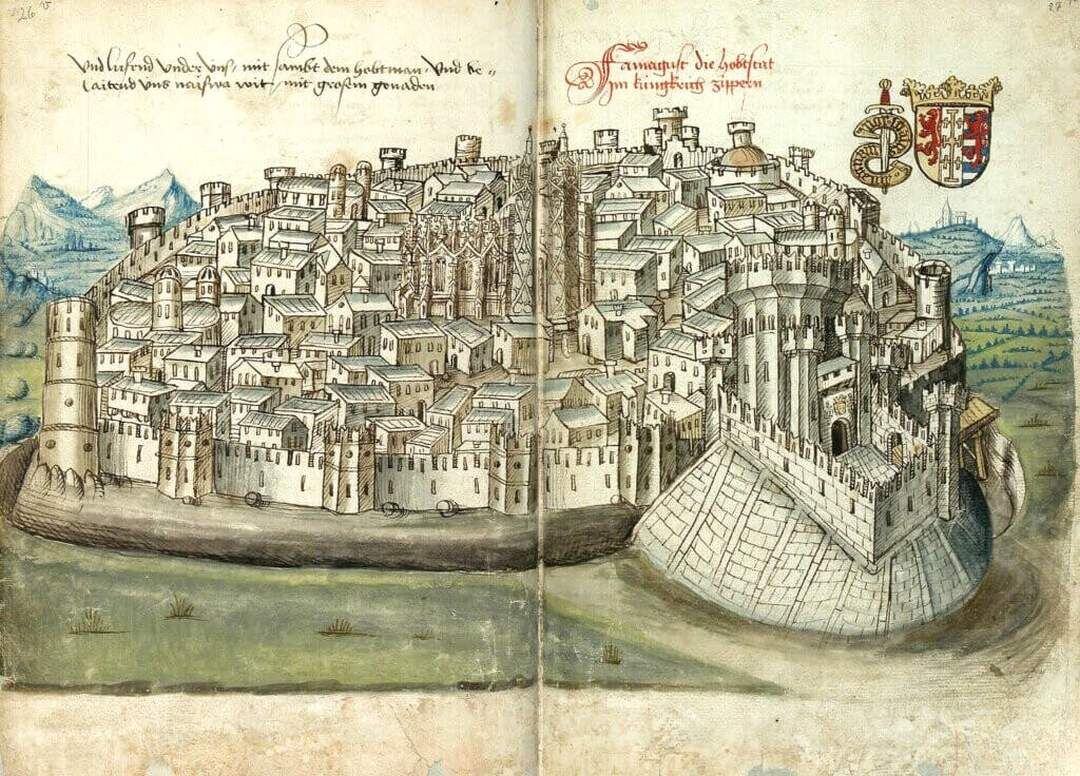 26 v
27
Vnd lufend vnder vns mit sambt dem hobtman Vnd be=
laitend vns naiswa wit mit grosen genaden
Famagust die hobtstat
Im küngkrich zippern